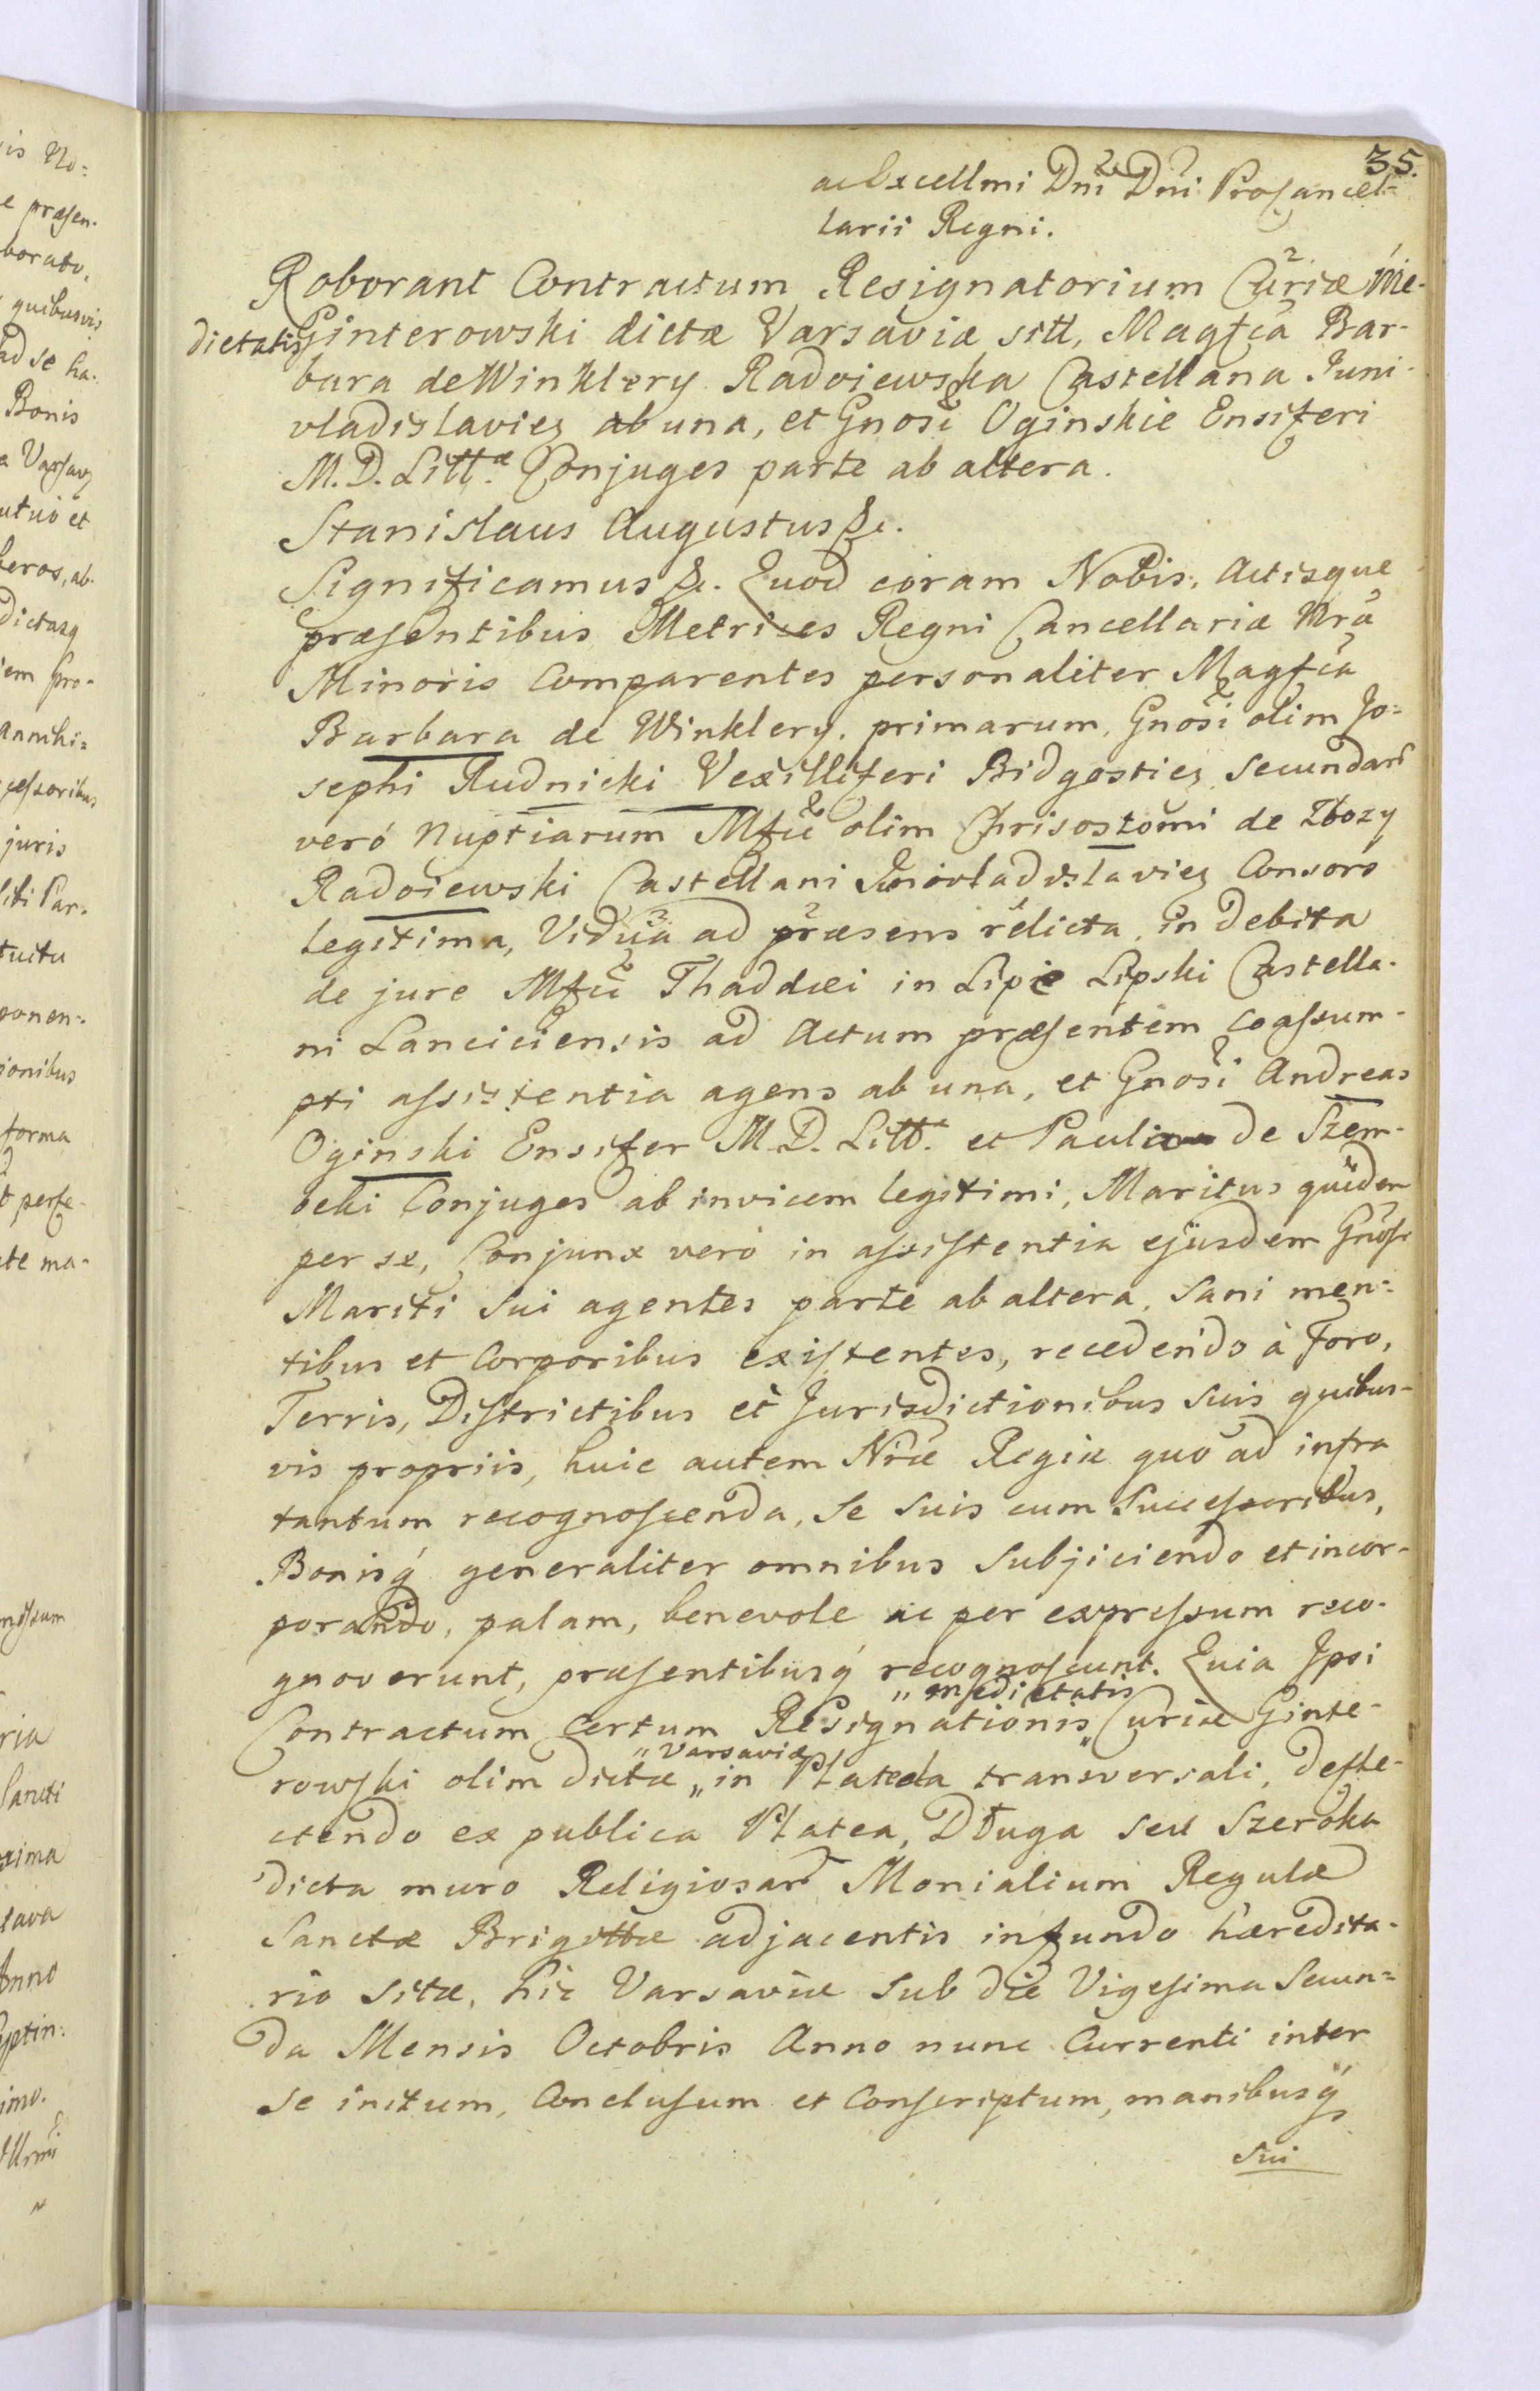 35.
ac Excellmi Dni Dni Procancel-
larii Regni.
Roborant Contractum Resignatorium Curiæ Me-
dictatis Ginterowski dictæ Varsaviæ sitt, Magfca Bar-
bara de Winklery Radoiewska Castellana Juni-
vladislavieñ ab una, et Gnosi Oginskie Ensiferi
M. D. Litt.æ Conjuges parte ab altera.
Stanislaus Augustus &c.
Significamus &c. Quod coram Nobis, Actisque
præsentibus Metrices Regni Cancellariæ Nræ
Minoris Comparentes personaliter Magfca
Barbara de Winklery, primarum, Gnosi olim Jo=
sephi Rudnicki Vexilliferi Bidgostieñ Secundarum
veró Nuptiarum Mfci olim Chrisostomi de Zbozy
Radoiewski Castellani Junivladislavieñ Consors
legitima, Vidua ad præsens relicta, in debita
de jure Mfci Thaddæi in Lipie Lipski Castella-
ni Lanciciensis ad Actum præsentem coassum-
pti assistentia agens ab una, et Gnosi Andreas
Oginski Ensifer M. D. Litt. et Paulina de Szem-
beki Conjuges ab invicem legitimi, Maritus quidem
per se, Conjunx veró in assistentia ejusdem Gnosi
Mariti Sui agentes parte ab altera, Sani men=
tibus et Corporibus existentes, recedendo à Foro,
Terris, Districtibus et Jurisdictionibus Suis quibus-
vis propriis, huic autem Nræ Regiæ quo ad infra
tantum recognoscenda, Se Suis cum Successoribus,
Bonisq́ generaliter omnibus Subjiciendo et incor-
porando, palam, benevole ac per expressum reco-
gnoverunt, præsentibusq́ recognoscunt. Quia Ipsi
Contractum Certum Resignationis „medietatis„ Curiæ Ginte-
rowski olim dictæ „Varsaviæ„ in Platea transversali, defle-
ctendo ex publica Platea, Długa seu Szeroka
dicta muro Religiosarum Monialium Regulæ
Sanctæ Brigittæ adjacentis in fundo hæredita-
rio sitæ, hic Varsaviæ sub die Vigesima Secun=
da Mensis Octobris Anno nunc Currenti inter
se initum, Conclusum et Conscriptum, manibusq́
Sui